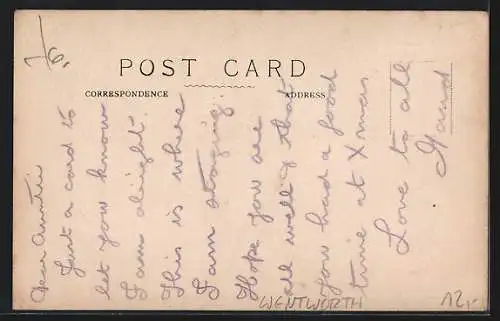 7/6.
POST CARD
CORRESPONDENCE
ADDRESS
Dear Auntie
Just a card to
let you know
I am alright.
This is where
I am staying.
Hope you are
all well & that
you had a good
time at Xmas
Love to all
WENTWORTH
12,-